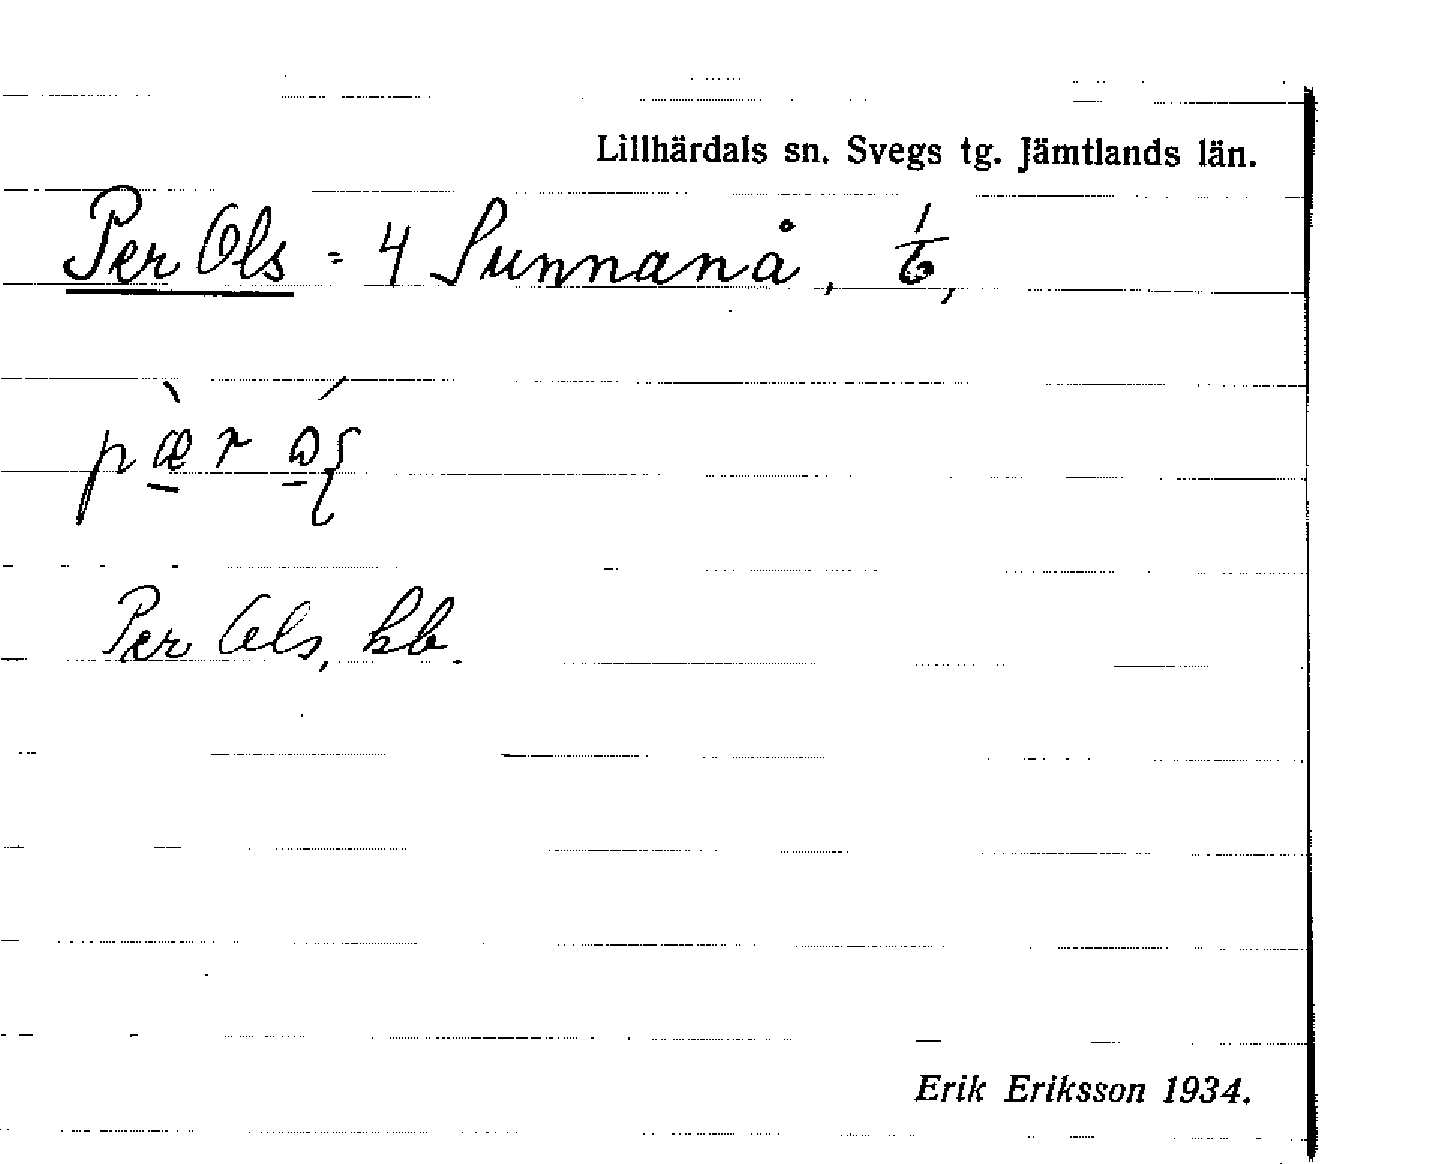 Lillhärdals sn. Svegs tg. Jämtlands län.
Per Ols = 4 Sunnanå, 1/6,
Per Ols, kb.
Erik Eriksson 1934.